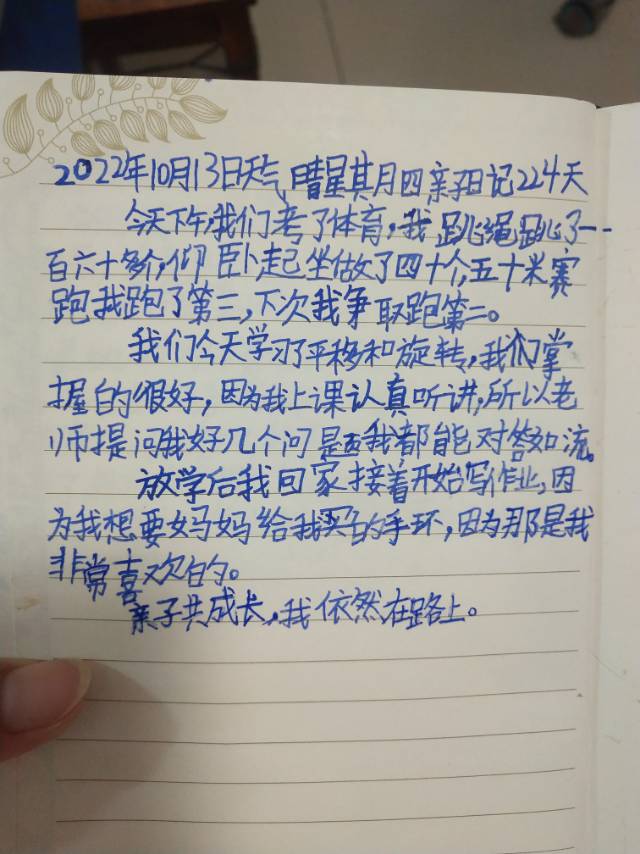 2022年10月13日天气晴星其月四亲子日记224天
今天下午,我们考了体育,我跳绳跳了一
百六十多个,仰卧起坐做了四十个,五十米赛
跑我跑了第三,下次我争取跑第二。
我们今天学习了平移和旋转,我们掌
握的很好,因为我上课认真听讲,所以老
师提问我好几个问是西我都能对答如流。
放学后我回家接着开始写作业,因
为我想要妈妈给我买的手环,因为那是我
非常喜欢的。
亲子共成长,我依然在路上。